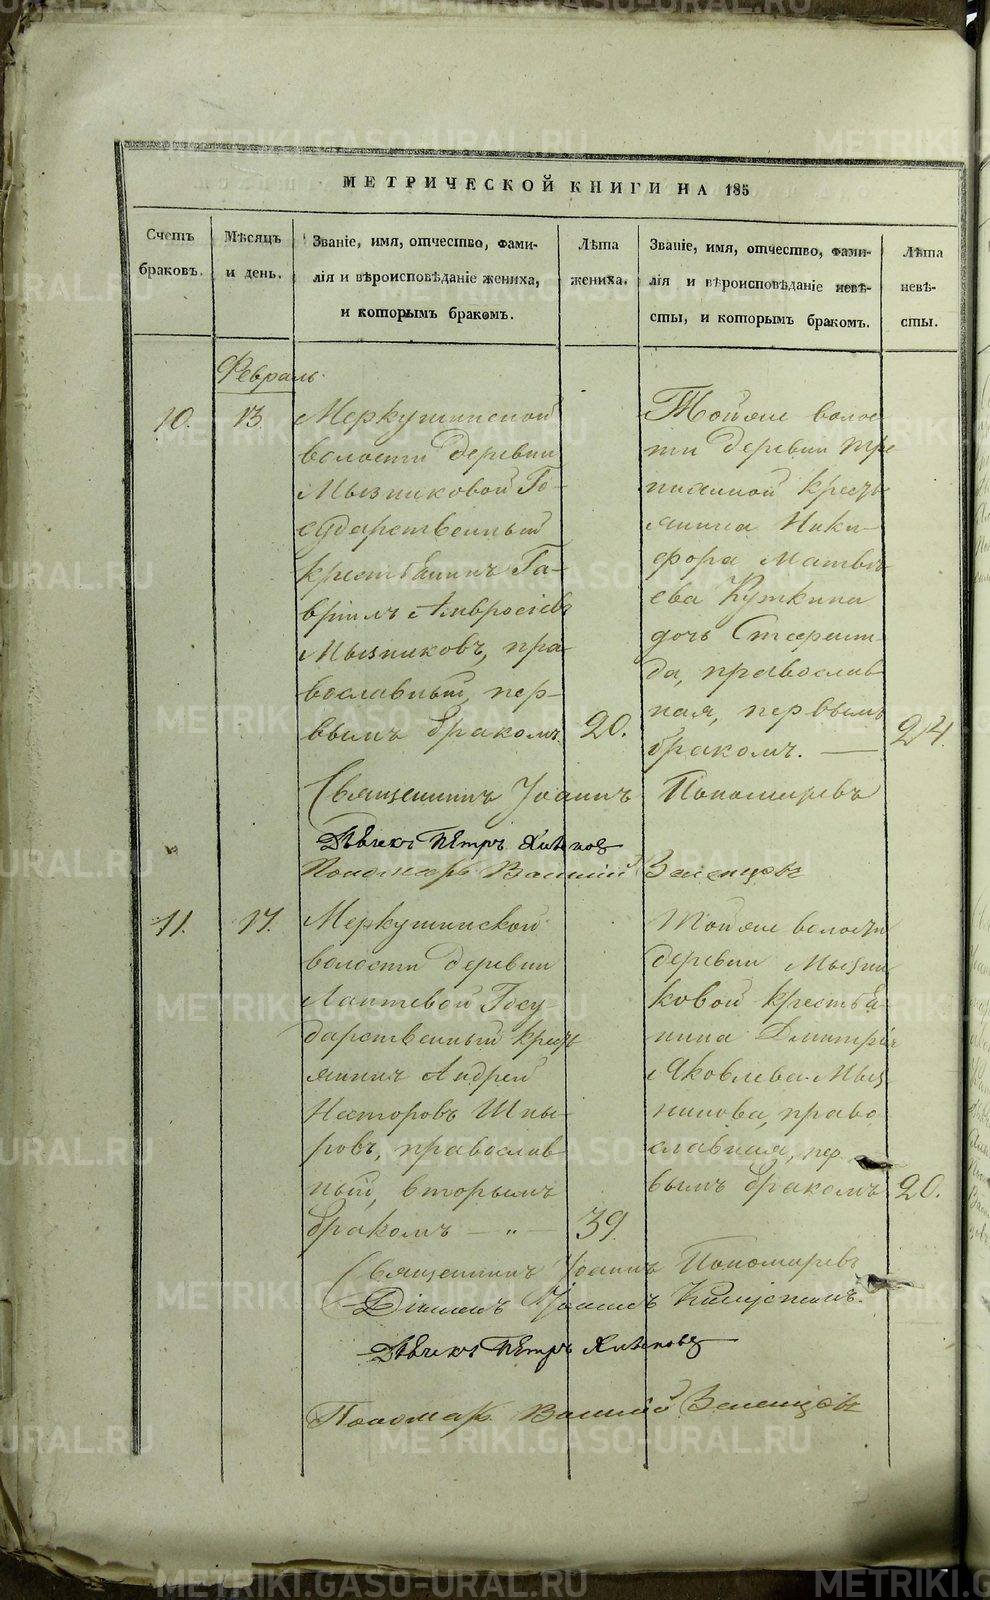 МЕТРИЧЕСКОЙ КНИГИ НА 185
Счетъ браковъ.
Мѣсяцъ и день.
Званіе, имя, отчество, фами-
лія и вѣроисповѣданіе жениха,
и которымъ бракомъ.
Лѣта жениха.
Званіе, имя, отчество, фами-
лія и вѣроисповѣданіе невѣ-
сты, и которымъ бракомъ.
Лѣта невѣ-
сты.
Февраль.
10.
13.
Меркушинской
волости деревни
Мызниковой Го-
сударственный
крестьянинъ Га-
вріилъ Амвросіевъ
Мызниковъ, пра-
вославный, пер-
вымъ бракомъ.
20.
Той же волос-
ти деревни
крестья-
нина Ники-
фора Матвѣ-
ева Куткина
дочь
да, православ-
ная, первымъ
бракомъ. —
24.
Священникъ Іоаннъ Пономаревъ
Дьячекъ Петръ Хлѣповъ
Пономарь Василій Зеленцовъ
11.
17.
Меркушинской
волости деревни
Лаптевой Госу
дарственный кресть
янинъ Андрей
Несторовъ Шпы-
ровъ, православ-
ный, вторымъ
бракомъ — „ —
39.
Той же волости
деревни Мызни
ковой крестья
нина Димитрія
Яковлева Мыз
никова, право
славная, пер
вымъ бракомъ
20.
Священникъ Іоаннъ Пономаревъ
Діаконъ Іоаннъ
Дьячекъ Петръ Хлѣповъ
Пономарь Василій Зеленцовъ
METRIKI.GASO-URAL.RU